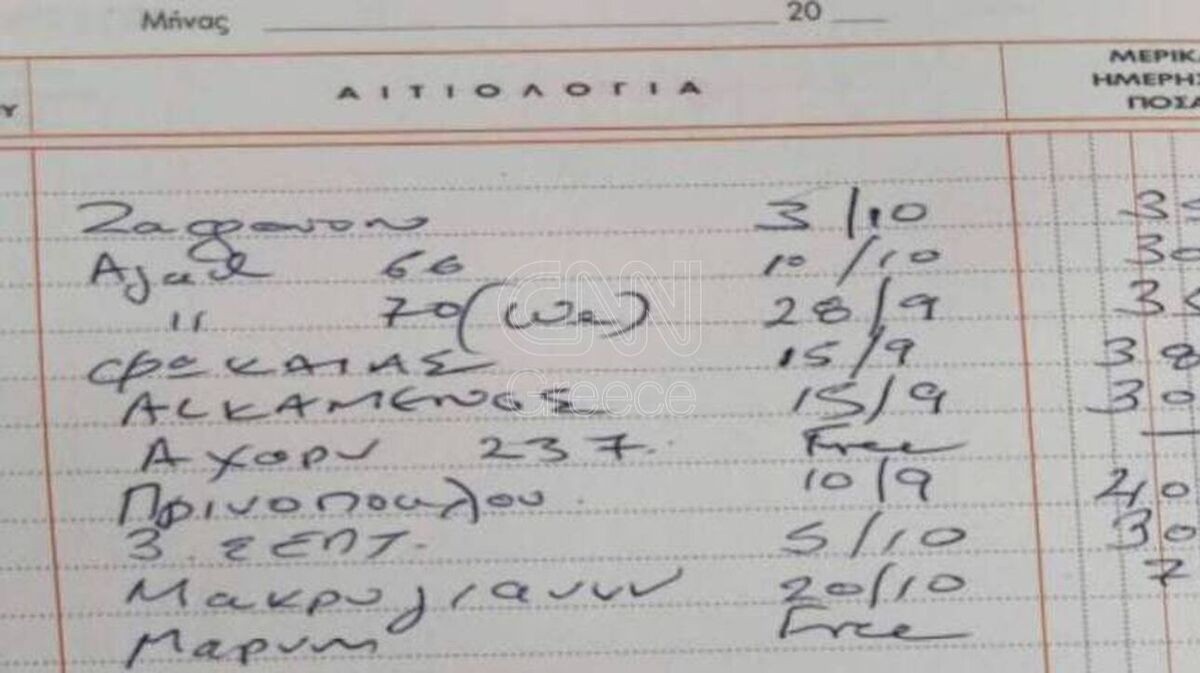 Μήνας 20
Υ ΑΙΤΙΟΛΟΓΙΑ ΜΕΡΙΚΑ
ΗΜΕΡΗΣ
ΠΟΣΑ
3/10
Αγαθ 66 10/10 30
" 70 28/9
ΦΩΚΑΙΑΣ 15/9 38
ΑΛΚΑΜΕΝΟΣ 15/9 30
Αχαρν 237. Free —
Πρινοπουλου. 10/9 40
3. ΣΕΠΤ. 5/10 30
Μακρυγιαννη 20/10 7
Free
CNN
Greece